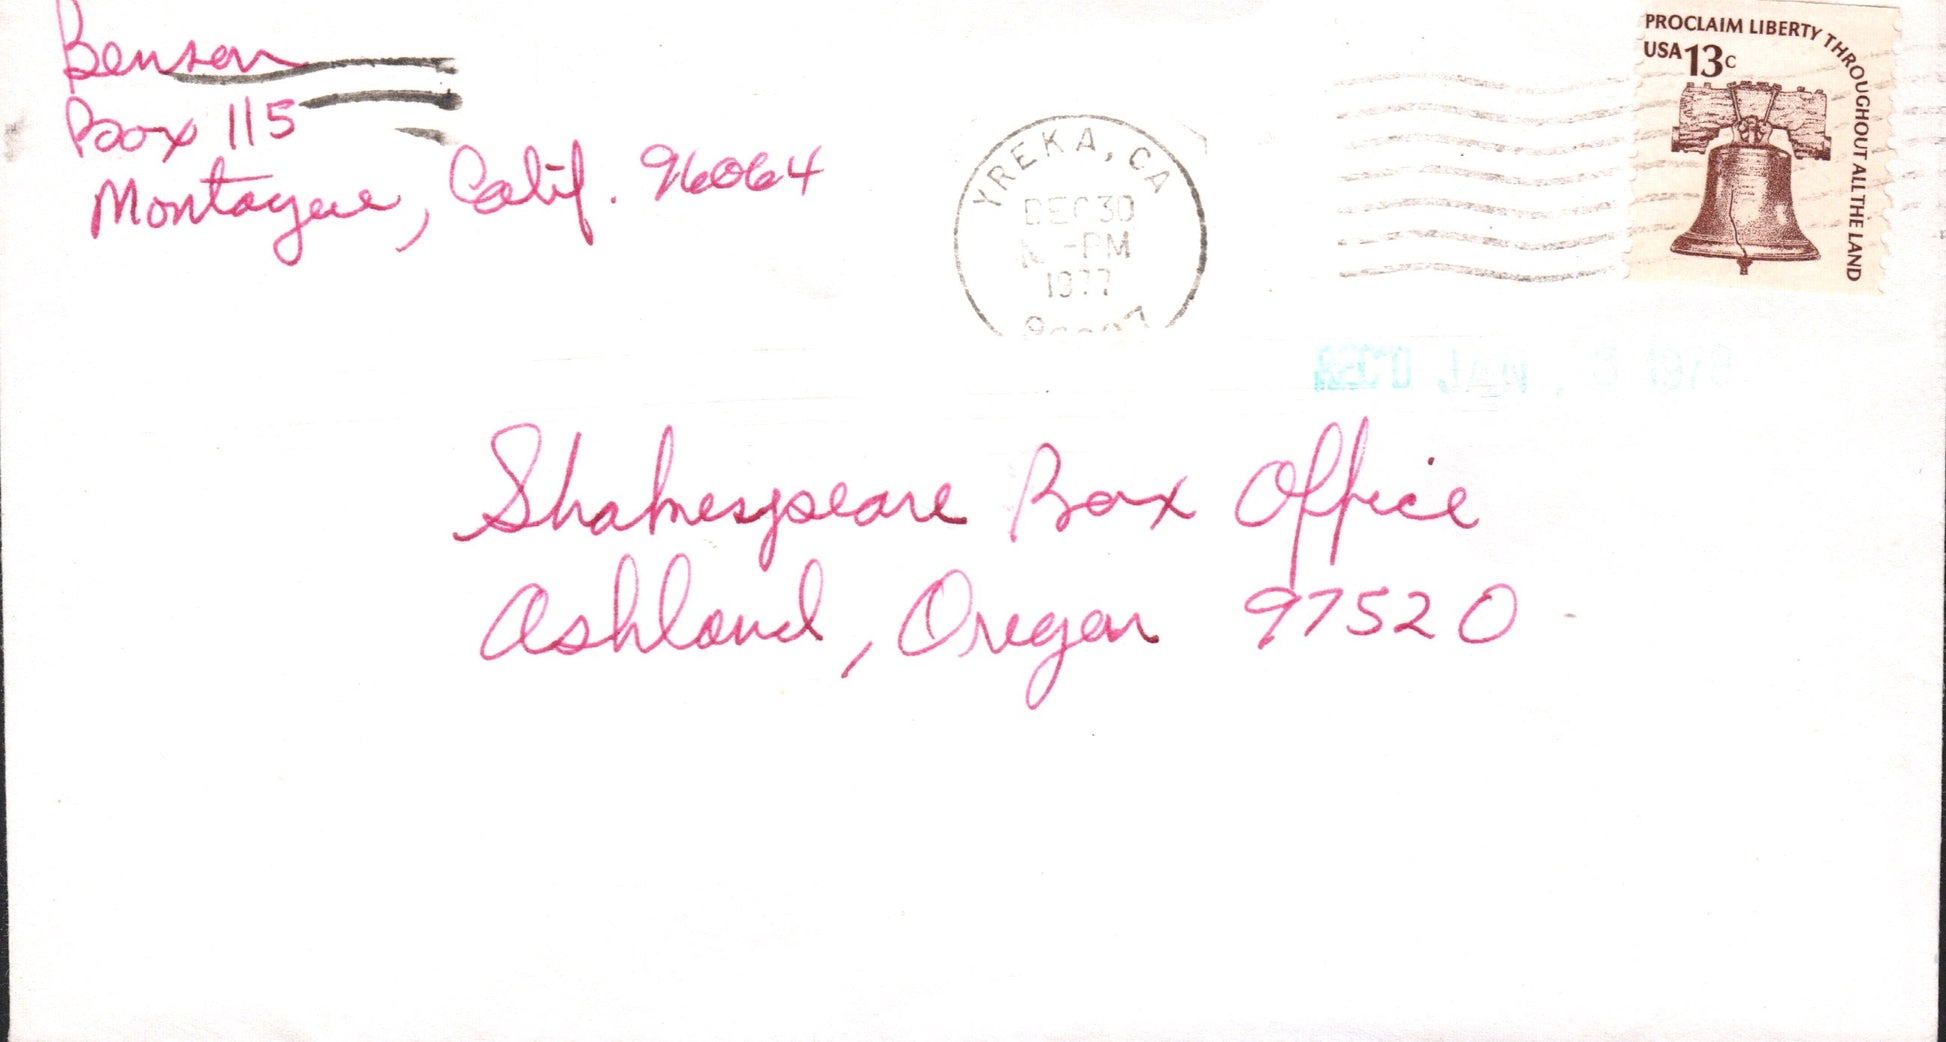 Benson
Box 115
Montague, Calif. 96064
YREKA, CA
DEC 30
PM
1977
PROCLAIM LIBERTY THROUGHOUT ALL THE LAND
USA 13c
REC'D JAN 3 1978
Shakespeare Box Office
Ashland, Oregon 97520